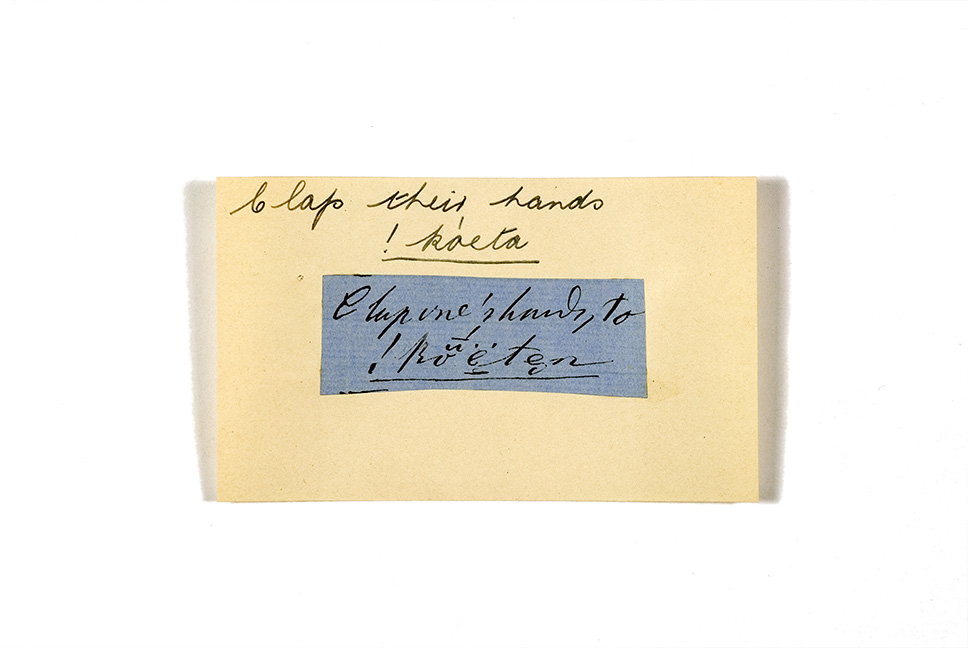 Clap their hands
! kóeta
Clap one's hands, to
! kṓ̈ë́tẹn